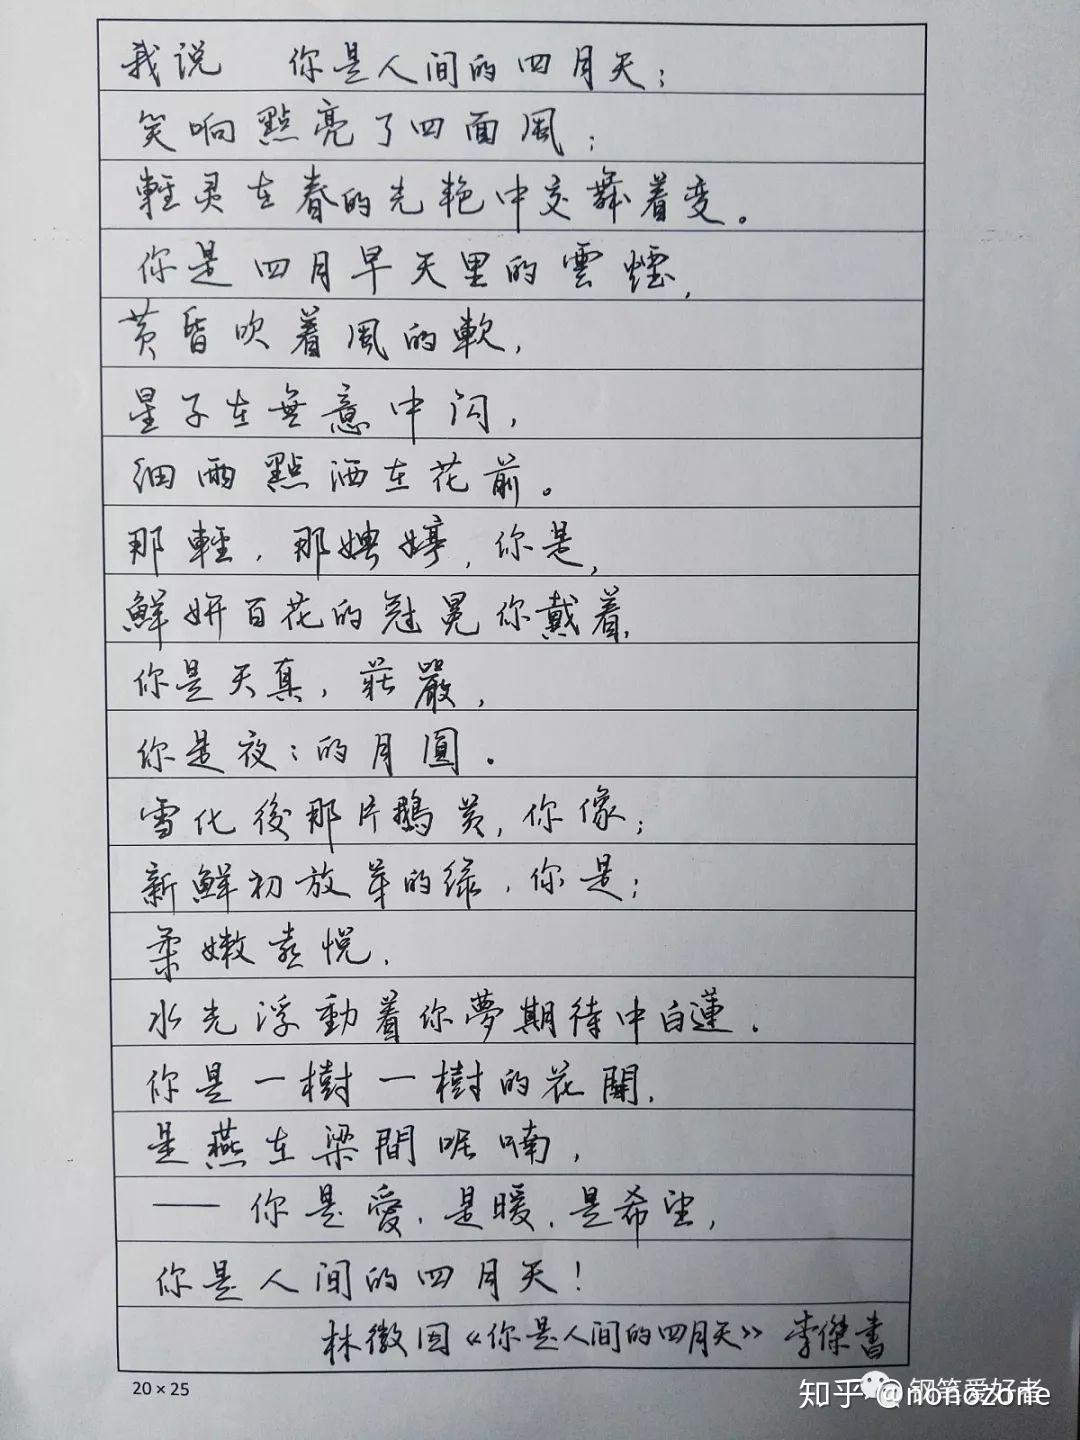 我说 你是人间的四月天；
笑响點亮了四面風；
輕灵在春的光艳中交舞着变。
你是四月早天里的雲煙，
黄昏吹着風的軟，
星子在無意中闪，
细雨點洒在花前。
那輕，那娉婷，你是，
鮮妍百花的冠冕你戴着，
你是天真，莊嚴，
你是夜：的月圓。
雪化後那片鵝黄，你像；
新鮮初放芽的绿，你是；
柔嫩喜悦，
水光浮動着你夢期待中白蓮。
你是一樹一樹的花開，
是燕在梁間呢喃，
——你是愛，是暖，是希望，
你是人间的四月天！
林徽因《你是人间的四月天》 李傑書
20×25
知乎 @nonozone
钢笔爱好者